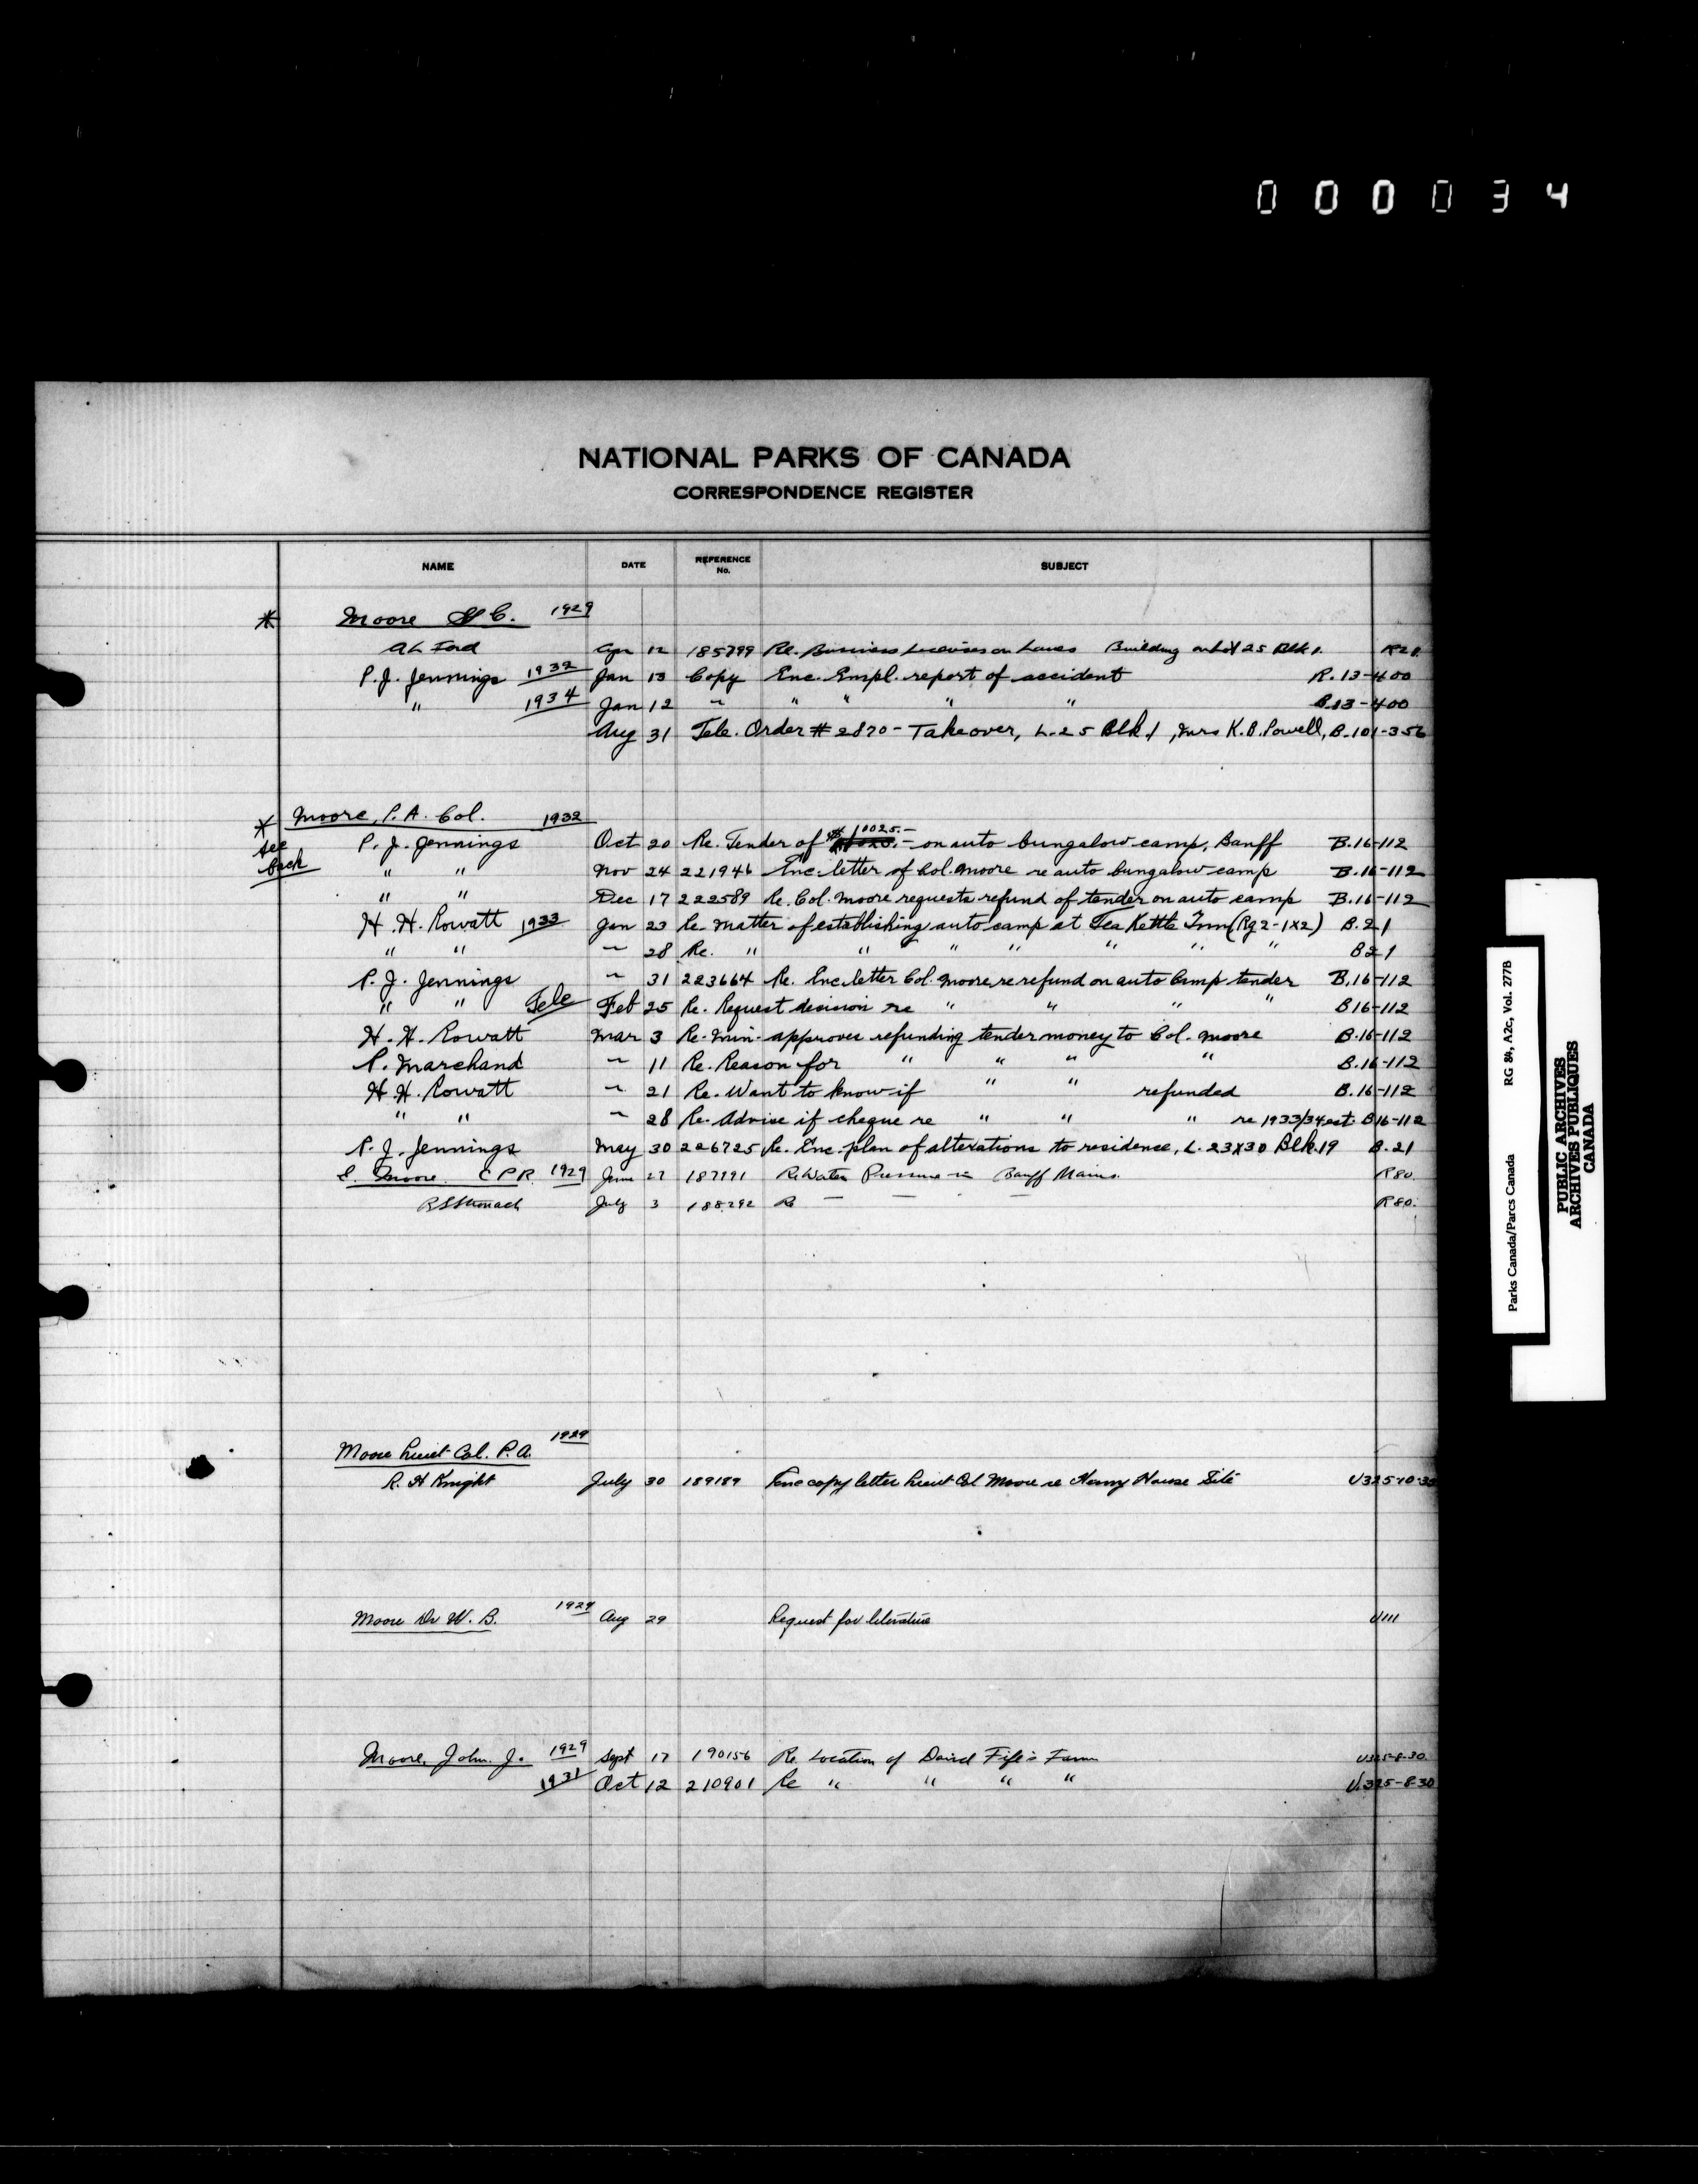 000034
NATIONAL PARKS OF CANADA
CORRESPONDENCE REGISTER
NAME DATE REFERENCE No. SUBJECT
* Moore C. 1929
Apr 12 185799 Re. Business Licenses on Building on Lot 25 Blk 1.
P. J. Jennings 1932 Jan 13 Copy Enc. Empl. report of accident R. 13-400
" 1934 Jan 12 ~ " " " " B.13-400
Aug 31 Tele. Order # 2870 - Takeover, L. 25 Blk 1, Mrs K. B. Powell, B. 101-356
* Moore, P. A. Col. 1932
see back P. J. Jennings Oct 20 Re. Tender of $10025.- on auto bungalow camp, Banff B.16-112
" " Nov 24 221946 Enc. letter of Col. Moore re auto bungalow camp B.16-112
" " Dec 17 222589 Re. Col. Moore requests refund of tender on auto camp B.16-112
H. H. Rowatt 1933 Jan 23 Re. matter of establishing auto camp at Tea Kettle Inn (Rg 2-1x2) B.21
" " ~ 28 Re. " " " " " " " " B21
P. J. Jennings ~ 31 223664 Re. Enc. letter Col. Moore re refund on auto Camp tender B.16-112
" " Tele Feb 25 Re. Request decision re " " " " B16-112
H. H. Rowatt Mar 3 Re. Min. approves refunding tender money to Col. Moore B.16-112
P. Marchand ~ 11 Re. Reason for " " " " B.16-112
H. H. Rowatt ~ 21 Re. Want to know if " " refunded B.16-112
" " ~ 28 Re. Advise if cheque re " " " re 1933/34 est. B16-112
P. J. Jennings May 30 226725 Re. Enc. plan of alterations to residence, L. 23X30 Blk.19 B.21
Moore C P R. 1929 June 27 187191 Re Water Pressure in Banff Mains. R80.
R S Stronach July 3 188292 Re — — — R80.
Moore Lieut Col. P. A. 1929
R. H Knight July 30 189189 Enc copy letter Lieut Col Moore re Henry House Site U325-10-30
Moore Dr W. B. 1929 Aug 29 Request for literature U111
Moore, John. J. 1929 Sept 17 190156 Re Location of David Fife's Farm U325-8-30.
1931 Oct 12 210901 Re " " " " U.325-8-30
Parks Canada/Parcs Canada RG 84, A2c, Vol. 277B
PUBLIC ARCHIVES
ARCHIVES PUBLIQUES
CANADA